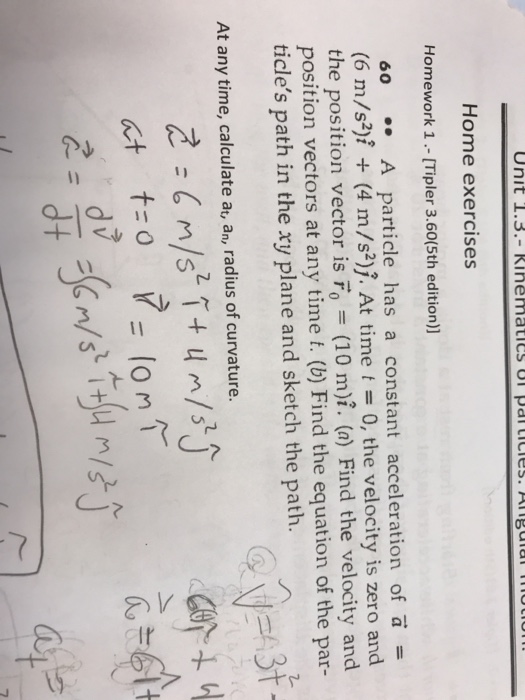 Unit 1.3.- Kinematics of particles. Angular motion
Home exercises
Homework 1.- [Tipler 3.60(5th edition)]
60 •• A particle has a constant acceleration of a⃗ =
(6 m/s²)î + (4 m/s²)ĵ. At time t = 0, the velocity is zero and
the position vector is r⃗₀ = (10 m)î. (a) Find the velocity and
position vectors at any time t. (b) Find the equation of the par-
ticle's path in the xy plane and sketch the path.
At any time, calculate aₜ, aₙ, radius of curvature.
a⃗ = 6 m/s² î + 4 m/s² ĵ
at t=0 r⃗ = 10 m î
a⃗ = dv⃗/dt = ∫6 m/s² î + ∫4 m/s² ĵ